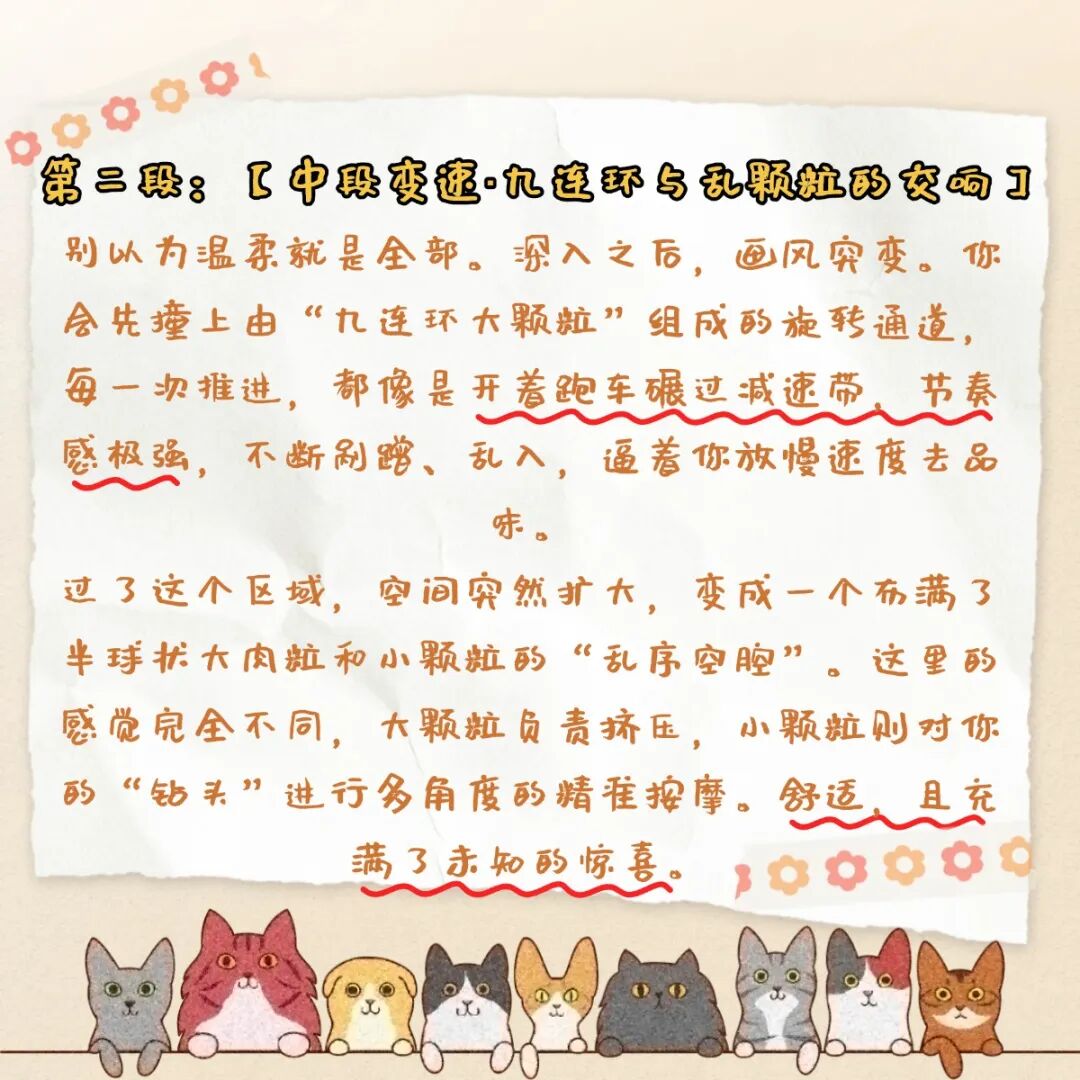 第二段：【中段变速·九连环与乱颗粒的交响】
别以为温柔就是全部。深入之后，画风突变。你
会先撞上由“九连环大颗粒”组成的旋转通道，
每一次推进，都像是开着跑车碾过减速带，节奏
感极强，不断剐蹭、乱入，逼着你放慢速度去品
味。
过了这个区域，空间突然扩大，变成一个布满了
半球状大肉粒和小颗粒的“乱序空腔”。这里的
感觉完全不同，大颗粒负责挤压，小颗粒则对你
的“钻头”进行多角度的精准按摩。舒适，且充
满了未知的惊喜。